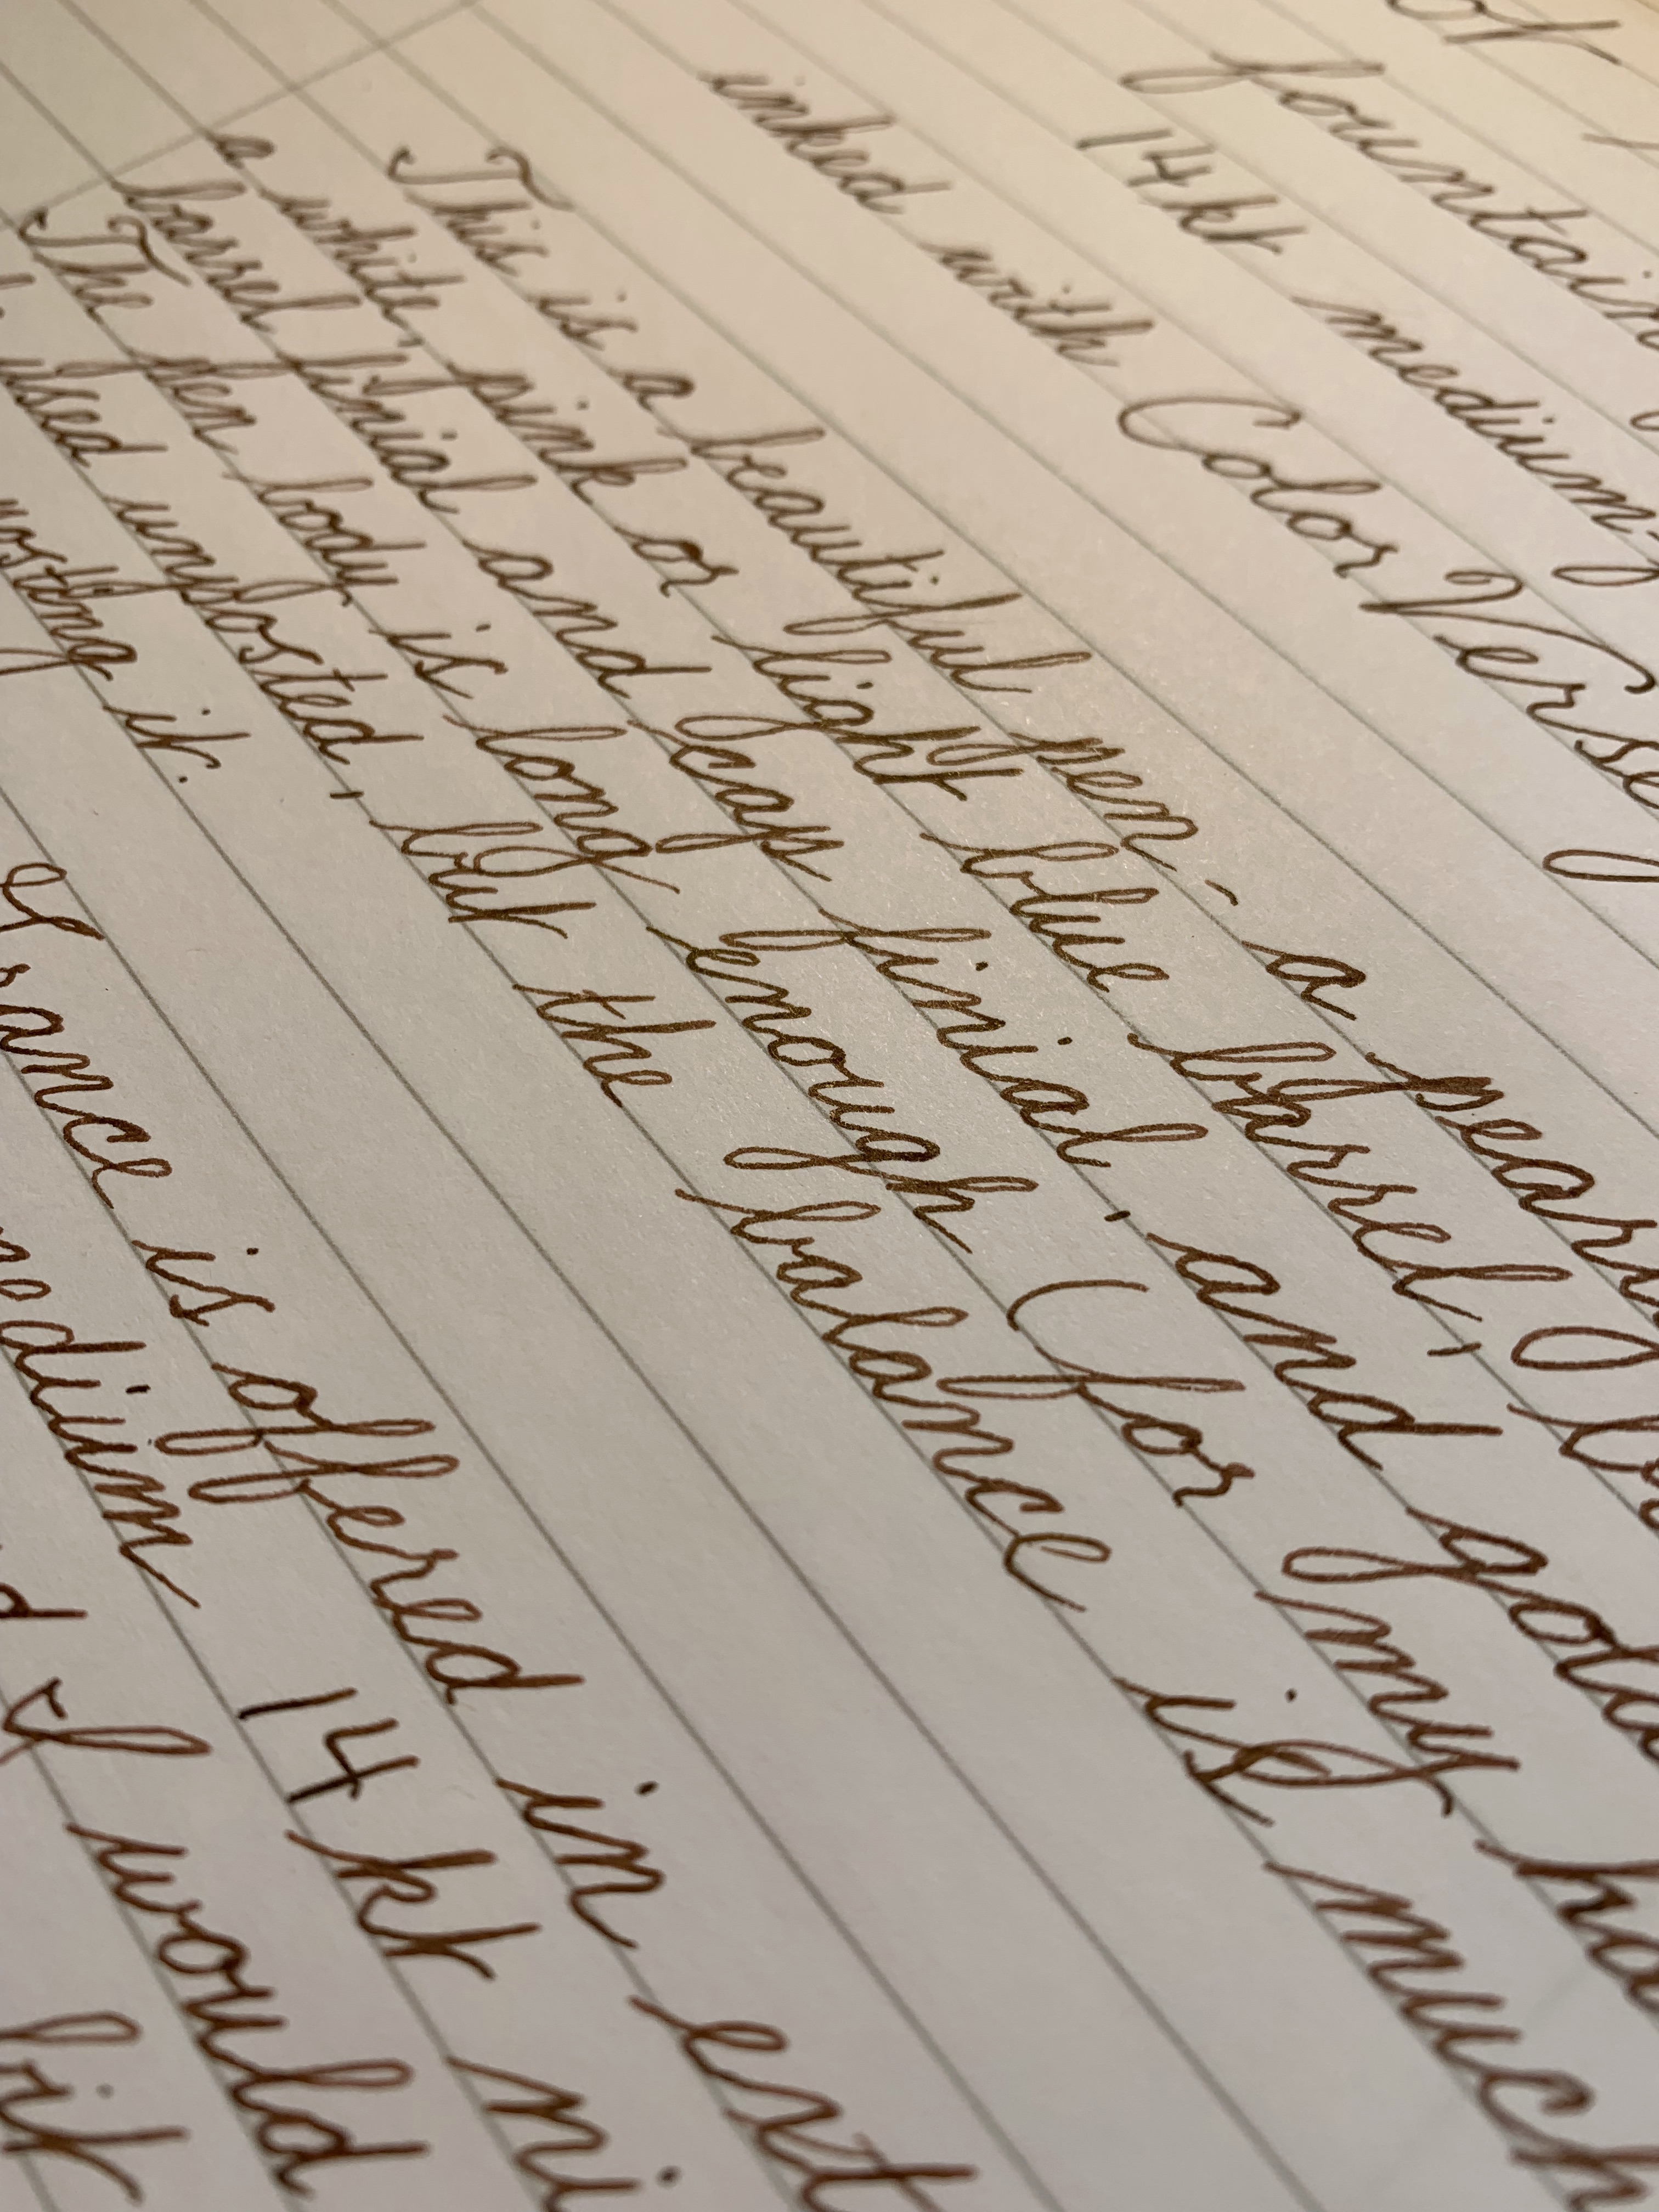 of
fountain
14kt medium
inked with ColorVerse
This is a beautiful pen - a pear
a white, pink or light blue barrel,
barrel finial and cap finial, and gold
The pen body is long enough (for my
used unposted, but the balance is much
posting it.
is offered in ext
medium 14kt ni
I would
bit